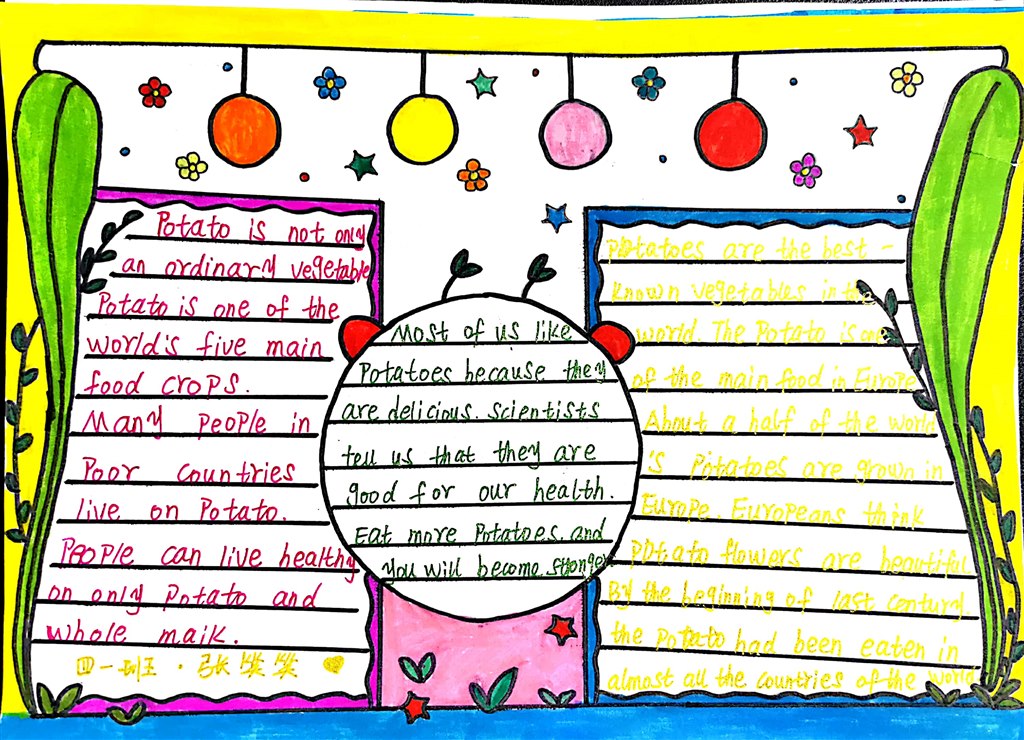 Potato is not only
an ordinary vegetable
Potato is one of the
world's five main
food crops.
Many people in
Poor countries
live on Potato.
People can live healthy
on only Potato and
whole maik.
四一班·张
Most of us like
Potatoes because they
are delicious. scientists
tell us that they are
good for our health.
Eat more Potatoes. and
you will become stronger
Potatoes are the best-
known vegetables in the
world. The Potato is one
of the main food in Europe
About a half of the world
's Potatoes are grown in
Europe. Europeans think
potato flowers are beautiful.
By the beginning of last century.
the potato had been eaten in
almost all the countries of the world